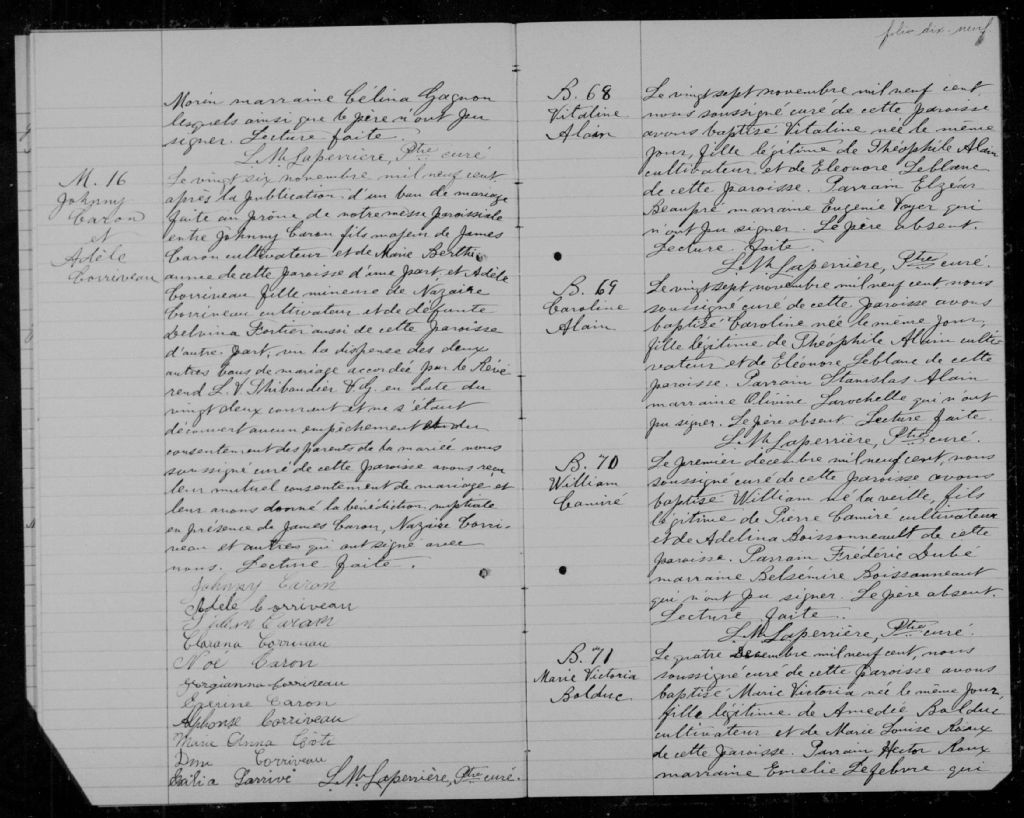 Morin marraine Célina Gagnon
lesquels ainsi que le père n'ont pu
signer. Lecture faite.
L. M. Laperrière, Ptre curé
M. 16
Johnny
Caron
et
Adèle
Corriveau
Le vingt six novembre mil neuf cent
après la publication d'un ban de mariage
faite au prône de notre messe paroissiale
entre Johnny Caron fils majeur de James
Caron cultivateur et de Marie Berthe
aunie de cette paroisse d'une part, et Adèle
Corriveau fille mineure de Nazaire
Corriveau cultivateur et de défunte
Delvina Fortier aussi de cette paroisse
d'autre part, vu la dispense des deux
autres bans de mariage accordée par le Révé
rend L. V. Thibaudier V.G. en date du
vingt deux courant et ne s'étant
découvert aucun empêchement et du
consentement des parents de la mariée nous
soussigné curé de cette paroisse avons reçu
leur mutuel consentement de mariage et
leur avons donné la bénédiction nuptiale
en présence de James Caron, Nazaire Corri-
veau et autres qui ont signé avec
nous. Lecture faite.
Johnny Caron
Adèle Corriveau
Caron
Clarana Corriveau
Noé Caron
Georgianna Corriveau
Caron
Alphonse Corriveau
Marie Anna Côté
Corriveau
Larrivé L. M. Laperrière, Ptre curé.
folio dix-neuf
B. 68
Vitaline
Alain
Le vingt sept novembre mil neuf cent
nous soussigné curé de cette paroisse
avons baptisé Vitaline née le même
jour, fille légitime de Théophile Alain
cultivateur et de Eléonore Leblanc
de cette paroisse. Parrain Elzéar
Beaupré marraine Eugénie Voyer qui
n'ont pu signer. Le père absent.
Lecture faite.
L. M. Laperrière, Ptre curé.
B. 69
Caroline
Alain
Le vingt sept novembre mil neuf cent nous
soussigné curé de cette paroisse avons
baptisé Caroline née le même jour,
fille légitime de Théophile Alain culti
vateur et de Eléonore Leblanc de cette
paroisse. Parrain Stanislas Alain
marraine Olivine Larochelle qui n'ont
pu signer. Le père absent. Lecture faite.
L. M. Laperrière, Ptre curé.
B. 70
William
Camiré
Le premier décembre mil neuf cent, nous
soussigné curé de cette paroisse avons
baptisé William né la veille, fils
légitime de Pierre Camiré cultivateur
et de Adelina Boissonneault de cette
paroisse. Parrain Frédéric Dubé
marraine Belsémire Boissonneaut
qui n'ont pu signer. Le père absent.
Lecture faite.
L. M. Laperrière, Ptre curé.
B. 71
Marie Victoria
Bolduc
Le quatre décembre mil neuf cent, nous
soussigné curé de cette paroisse avons
baptisé Marie Victoria née le même jour
fille légitime de Amedée Bolduc
cultivateur et de Marie Louise Roux
de cette paroisse. Parrain Hector Roux
marraine Emelie Lefebvre qui